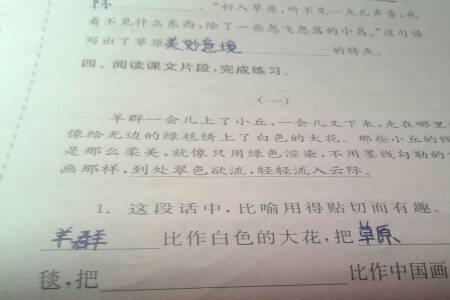 怀 。“初入草原,听不见一点儿声音,也
看不见什么东西,除了一些忽飞忽落的小鸟。”这句话
写出了草原美妙意境的特点。
四、阅读课文片段,完成练习。
(一)
羊群一会儿上了小丘,一会儿又下来,走在哪里
像给无边的绿毯绣上了白色的大花。那些小丘的线
是那么柔美,就像只用绿色渲染,不用墨线勾勒的
画那样,到处翠色欲流,轻轻流入云际。
1. 这段话中,比喻用得贴切而有趣。
羊群 比作白色的大花,把 草原
毯,把 比作中国画